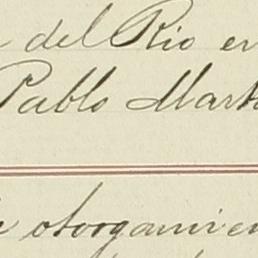 del Rio en
Pablo Mart
otorgamien